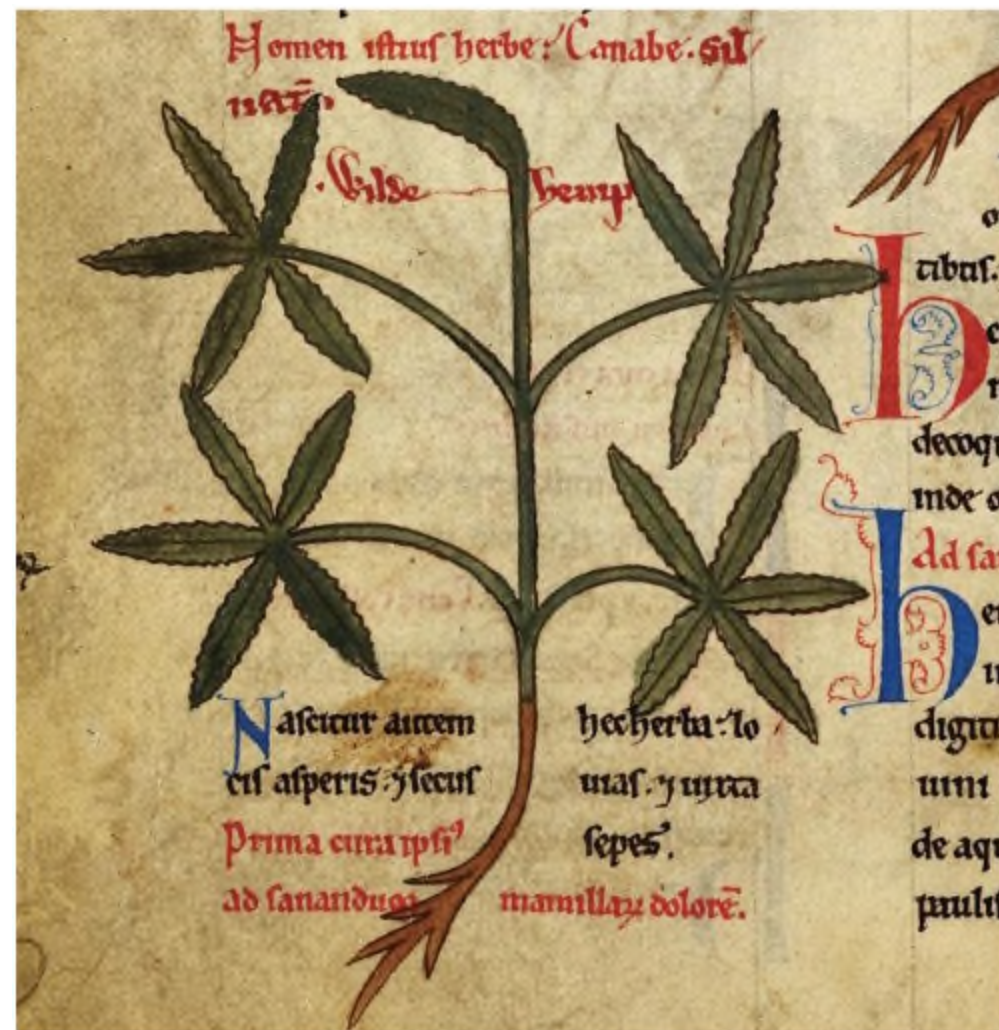 Nomen istius herbe: Canabe. sil
uatic̄.
Wilde hemp
Nascitur autem hec herba: lo
cis asperis. ⁊ secus uias. ⁊ iuxta
Prima cura ipsiꝰ sepes.
ad sanandum mamillaꝝ dolorē.
tibus.
decoq
inde
Ad sa
digiti
uini
de aq
paulu